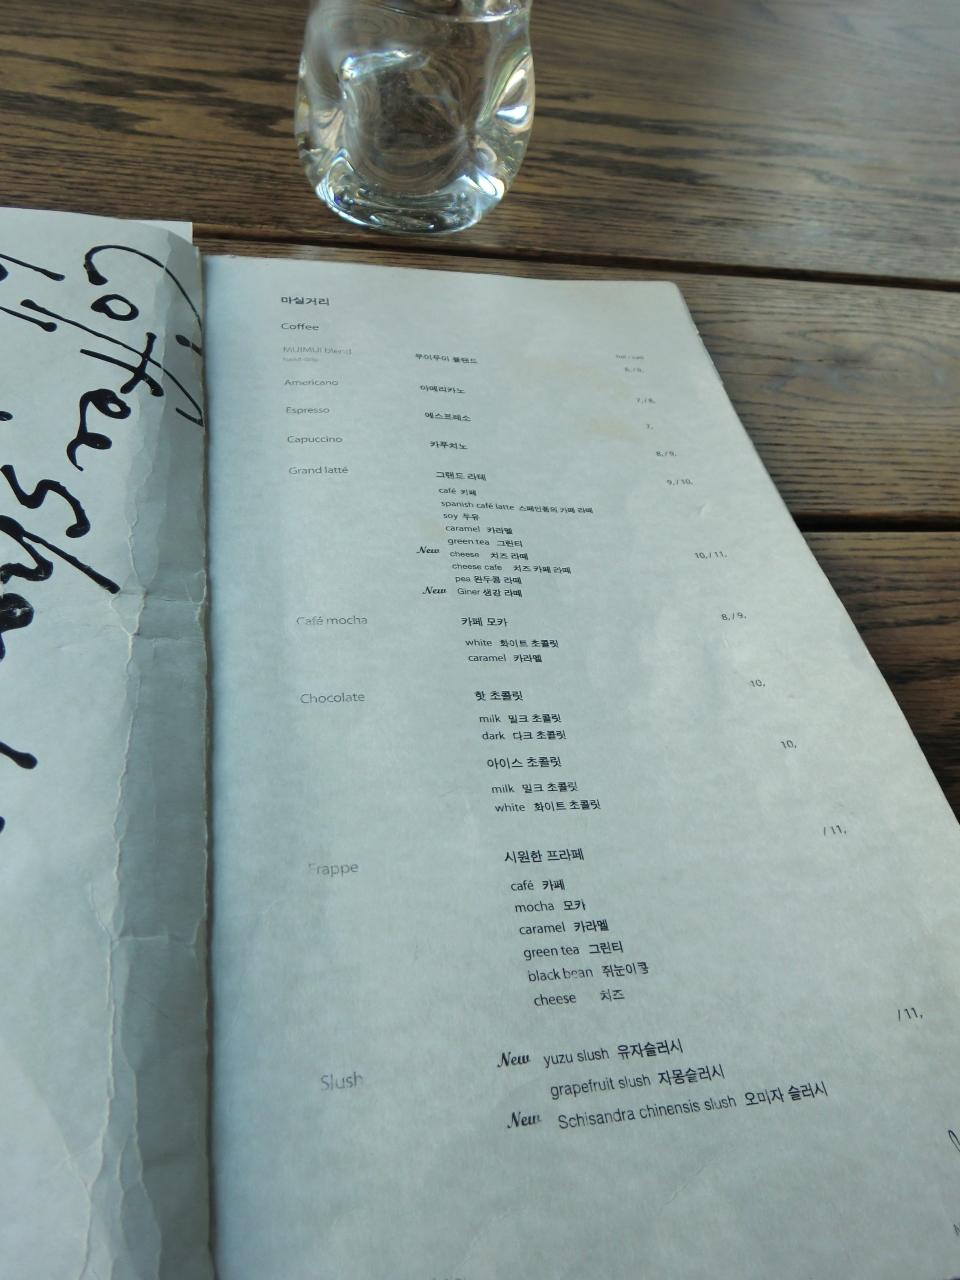 Coffee Sho
마실거리
Coffee
MUIMUI blend 무이무이 블랜드 hot / iced
hand-drip 8,/9,
Americano 아메리카노 7,/8,
Espresso 에스프레소 7,
Capuccino 카푸치노 8,/9,
Grand latté 그랜드 라떼 9,/10,
café 카페
spanish café latte 스페인풍의 카페 라떼
soy 두유
caramel 카라멜
green tea 그린티
New cheese 치즈 라떼 10,/11,
cheese cafe 치즈 카페 라떼
pea 완두콩 라떼
New Giner 생강 라떼
Café mocha 카페 모카 8,/9,
white 화이트 초콜릿
caramel 카라멜
Chocolate 핫 초콜릿 10,
milk 밀크 초콜릿
dark 다크 초콜릿
아이스 초콜릿 10,
milk 밀크 초콜릿
white 화이트 초콜릿
Frappe 시원한 프라페 /11,
café 카페
mocha 모카
caramel 카라멜
green tea 그린티
black bean 쥐눈이콩
cheese 치즈
Slush New yuzu slush 유자슬러시 /11,
grapefruit slush 자몽슬러시
New Schisandra chinensis slush 오미자 슬러시